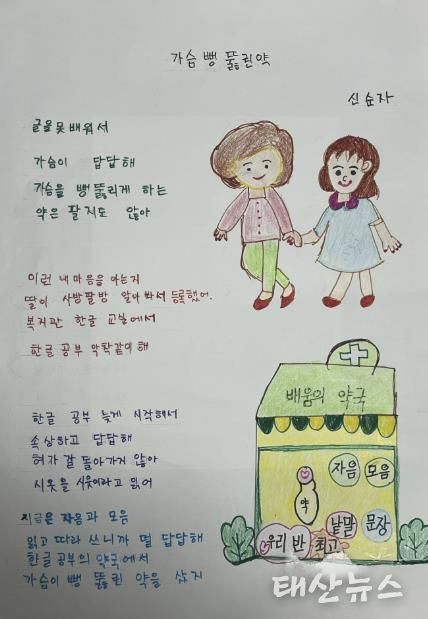 가슴 뻥 뚫린 약
신순자
글을 못 배워서
가슴이 답답해
가슴을 뻥 뚫리게 하는
약은 팔지도 않아
이런 내 마음을 아는지
딸이 사방팔방 알아봐서 등록했어.
복지관 한글 교실에서
한글 공부 악착같이 해
한글 공부 늦게 시작해서
속상하고 답답해
혀가 잘 돌아가지 않아
시옷을 시웃이라고 읽어
지금은 자음과 모음
읽고 따라 쓰니까 덜 답답해
한글 공부의 약국에서
가슴이 뻥 뚫린 약을 샀지
배움의 약국
자음 모음
약
낱말 문장
우리 반 최고
태산뉴스